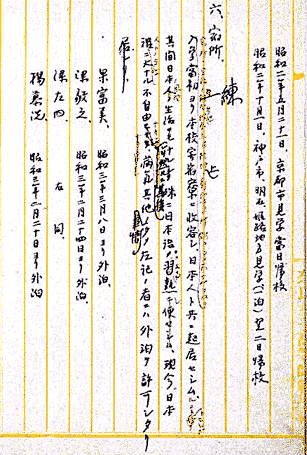 昭和二年五月二十一日、京都市見学當日帰校
昭和二年十月一日、神戸市、明石、姫路地方見学(一泊)翌二日帰校
六、宿所
入学當初ヨリ本校寄宿舎ニ收容シ、日本人ト共ニ起居セシム
其間日本人ノ生活ヲ 殊ニ日本語ノ習熟ニ便セシム、現今、日本
語ニ大ナル不自由ナキ 病気其他 左記ノ者ニハ外泊ヲ許可シタリ
居
果富美、 昭和三年三月八日ヨリ外泊
温毅之、 昭和三年二月二十四日ヨリ外泊、
温左四、 右同、
楊慕洗、 昭和三年二月二十日ヨリ外泊